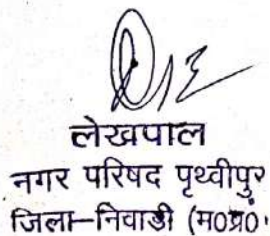 लेखपाल
नगर परिषद पृथ्वीपुर
जिला-निवाडी (म0प्र0)